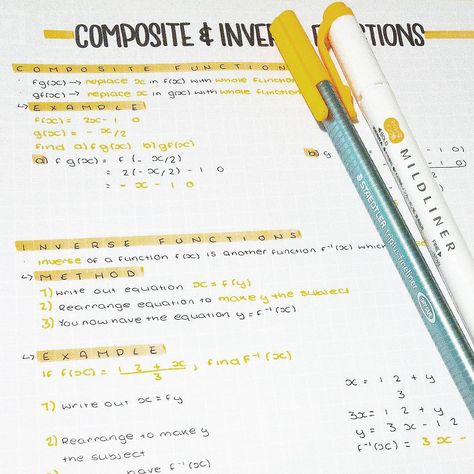 COMPOSITE & INVER CTIONS
COMPOSITE FUNCTION
· fg(x) → replace x in f(x) with whole function
· gf(x) → replace x in g(x) with whole function
↳ EXAMPLE
f(x) = 2x - 10
g(x) = - x/2
find a) fg(x) b) gf(x)
a) fg(x) = f(- x/2)
= 2(- x/2) - 10
= - x - 10
b) g
- 10)
10)
MILDLINER
STAEDTLER triplus fineliner
INVERSE FUNCTIONS
· inverse of a function f(x) is another function f⁻¹(x) which
↳ METHOD
1) Write out equation x = f(y)
2) Rearrange equation to make y the subject
3) You now have the equation y = f⁻¹(x)
↳ EXAMPLE
if f(x) = 12 + x / 3, find f⁻¹(x)
1) Write out x = fy
x = 12 + y
3
3x = 12 + y
2) Rearrange to make y
y = 3x - 12
the subject
f⁻¹(x) = 3x -
have f⁻¹(x)